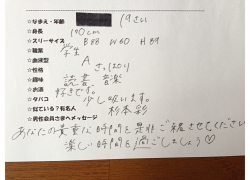 ☆なまえ・年齢 19さい
☆身長 170cm
☆スリーサイズ B88 W60 H89
☆職業 学生
☆血液型 A
☆性格 さっぱり
☆趣味 読書 音楽
☆お酒 好きです。
☆タバコ 少し吸います。
☆似ている?有名人 杉本彩
☆男性会員さまへメッセージ
あなたの貴重な時間を是非ご一緒させてください
楽しい時間を過ごしましょう♡